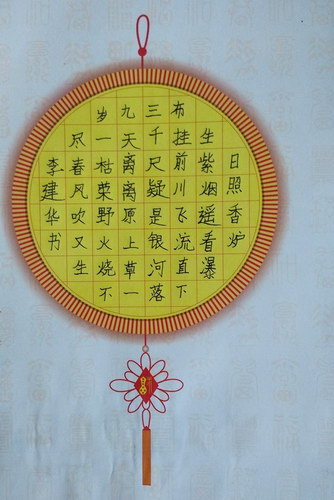 日照香炉
生紫烟遥看瀑
布挂前川飞流直下
三千尺疑是银河落
九天离离原上草一
岁一枯荣野火烧不
尽春风吹又生
李建华书